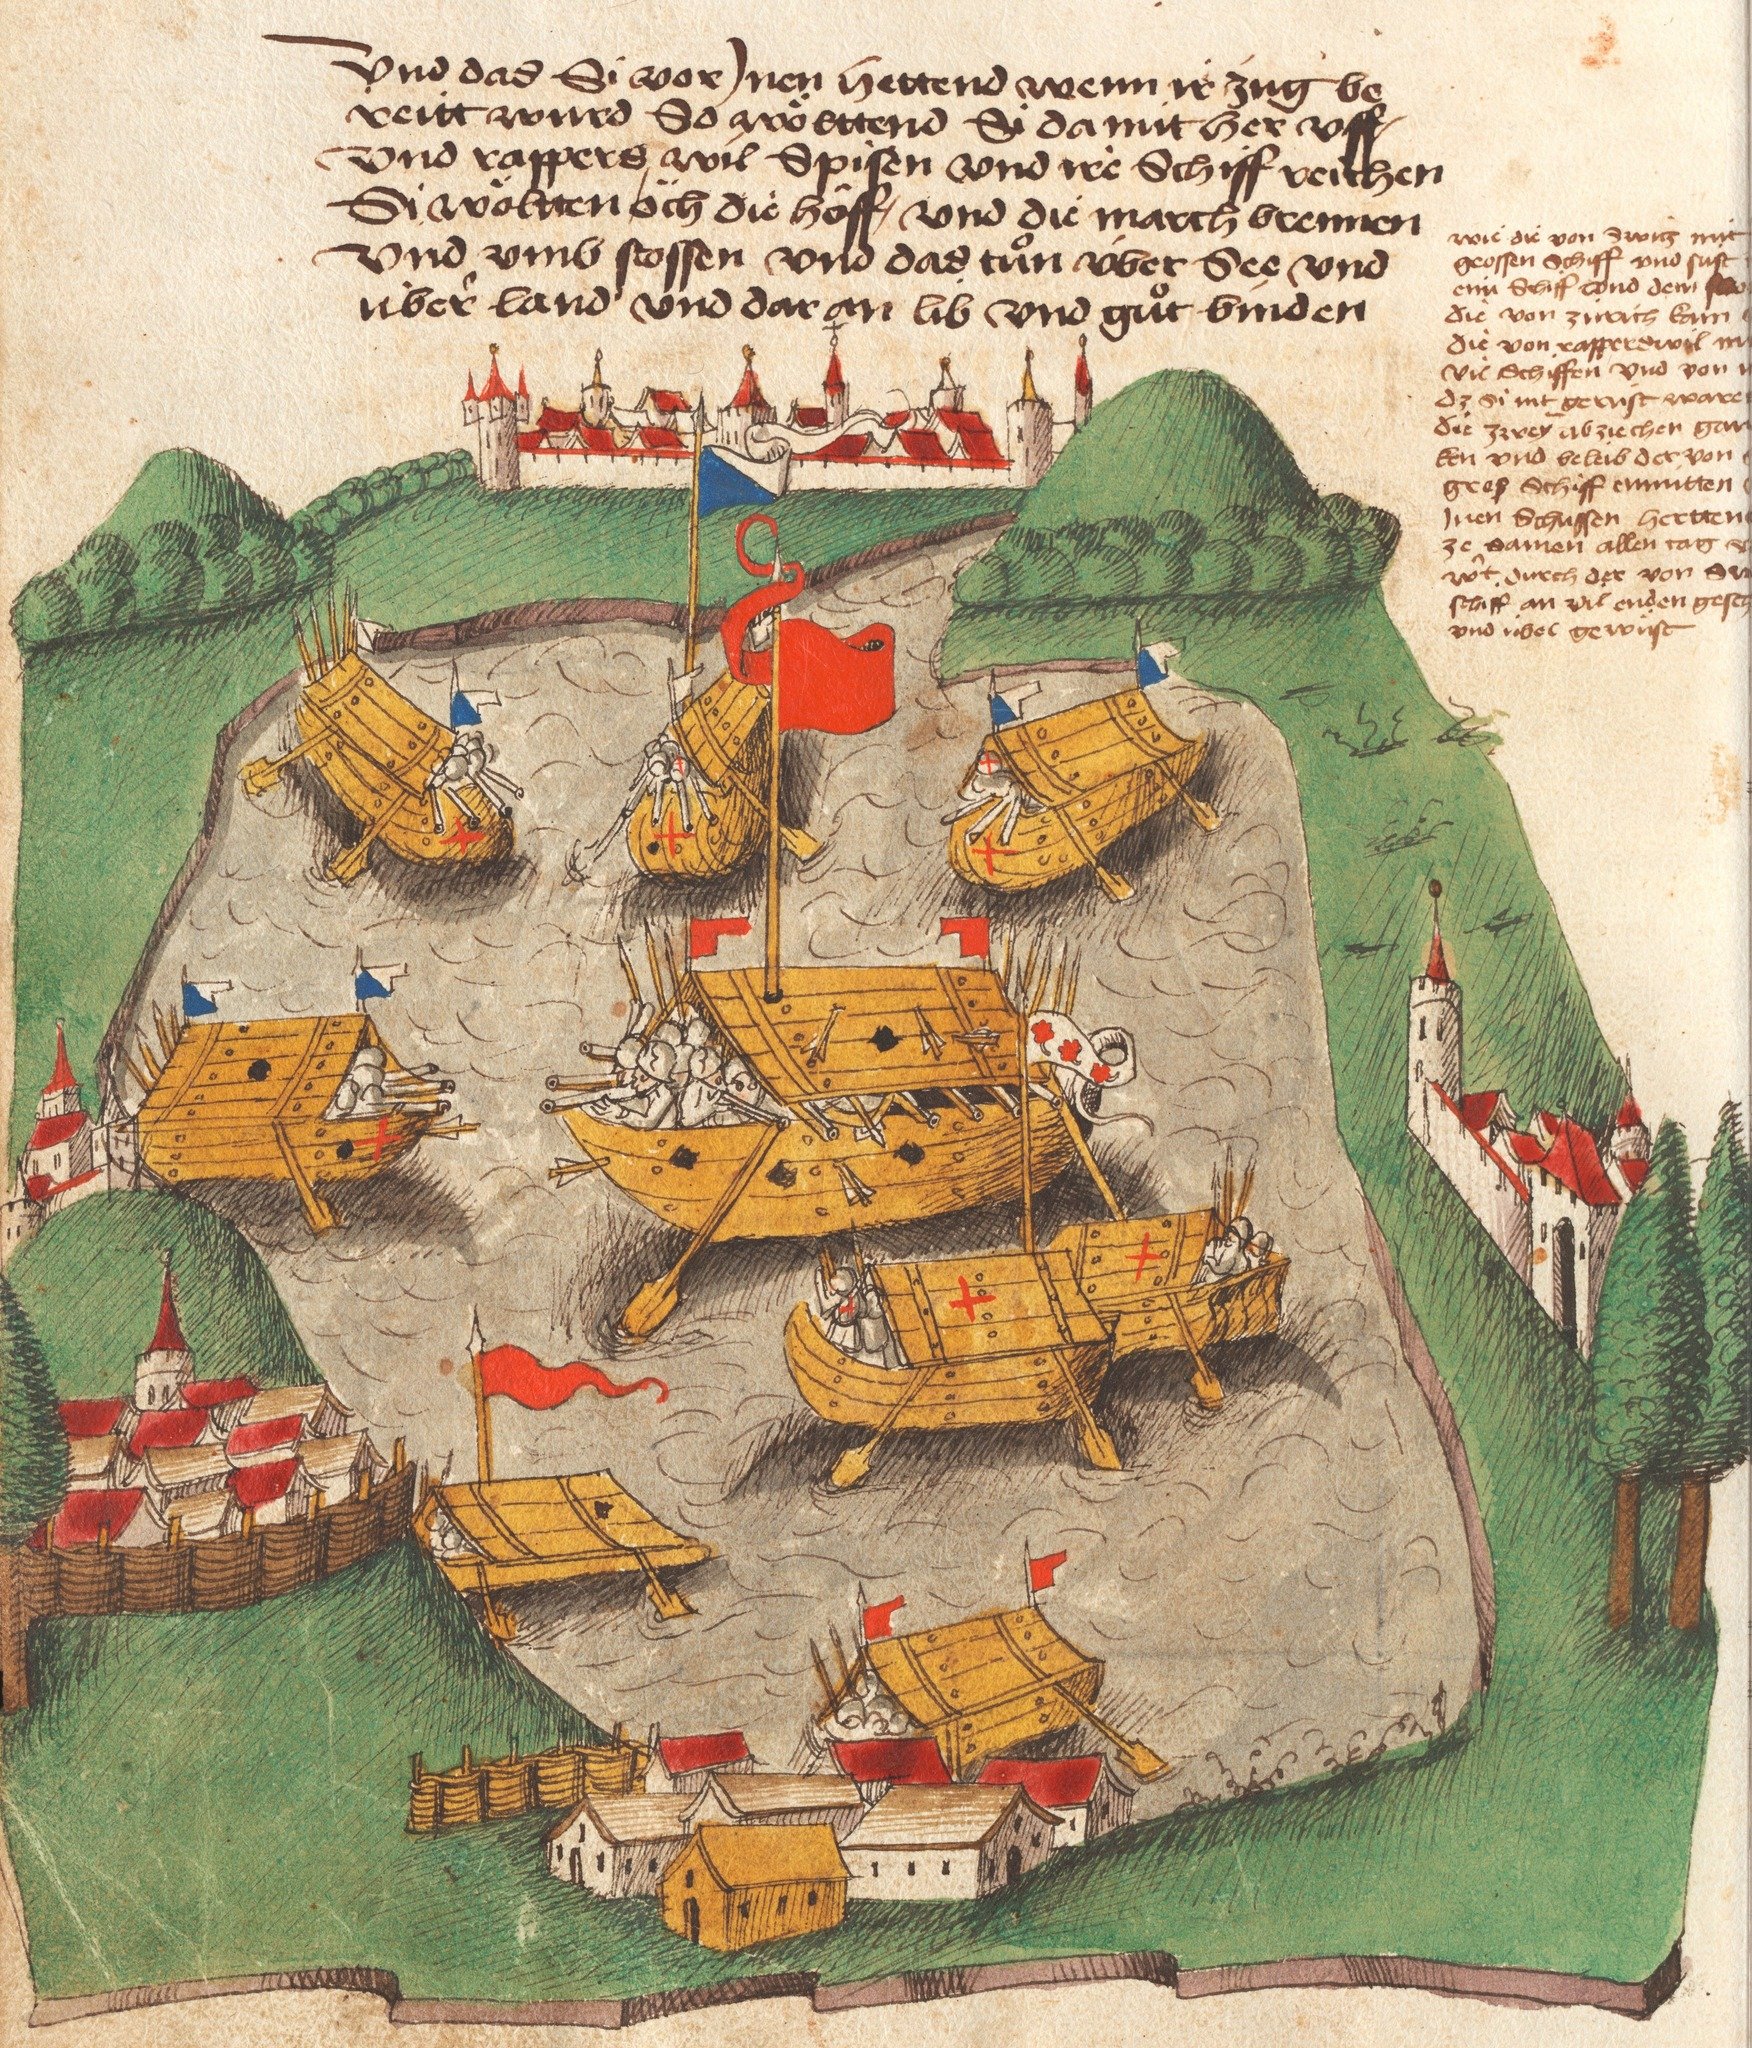 Vnd das Si vor Jnen hettend wenn ir zug be
reitt wurd So wöltend Si da mit her uff
Vnd rappers wil Spisen vnd ire Schiff reichen
Si wöltten öch die höff / vnd die march brennen
Vnd vmb stossen vnd das tůn über See vnd
über land vnd dar an lib vnd gůt binden
wie die von Switz mit
grossen Schiff vnd sust
eim Schiff vnd dem
die von zürich kam
die von rapperswil mi
vil Schiffen vnd von
dz Si nit gerüst waren
die zwey abziechen
ken vnd beleib der von
gros Schiff enmitten
Jnen Schussen hertten
ze samen allen tag
wt durch der von Sw
schiff an vil enden gesch
vnd übel gewüst